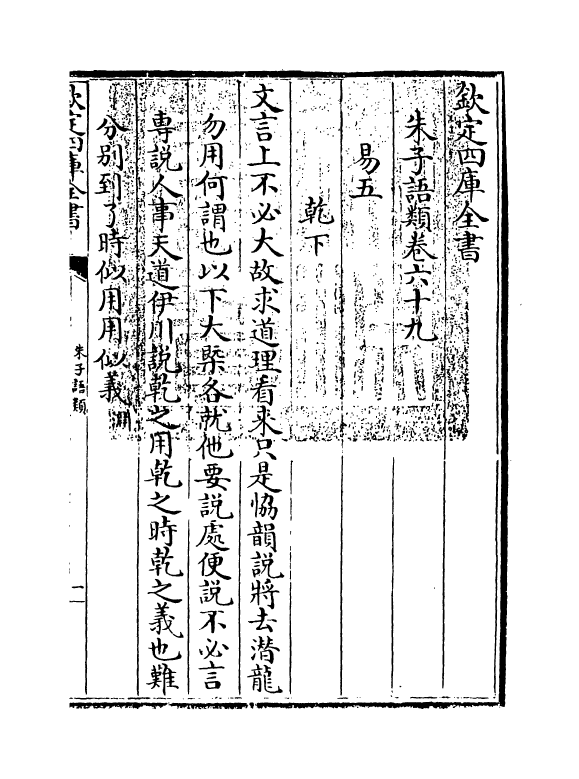 欽定四庫全書
朱子語類卷六十九
易五
乾下
文言上不必大故求道理看来只是協韻說將去潛龍
勿用何謂也以下大槩各就他要說處便說不必言
專說人事天道伊川說乾之用乾之時乾之義也難
分別到了時似用用似義淵
欽定四庫全書
朱子語類
一